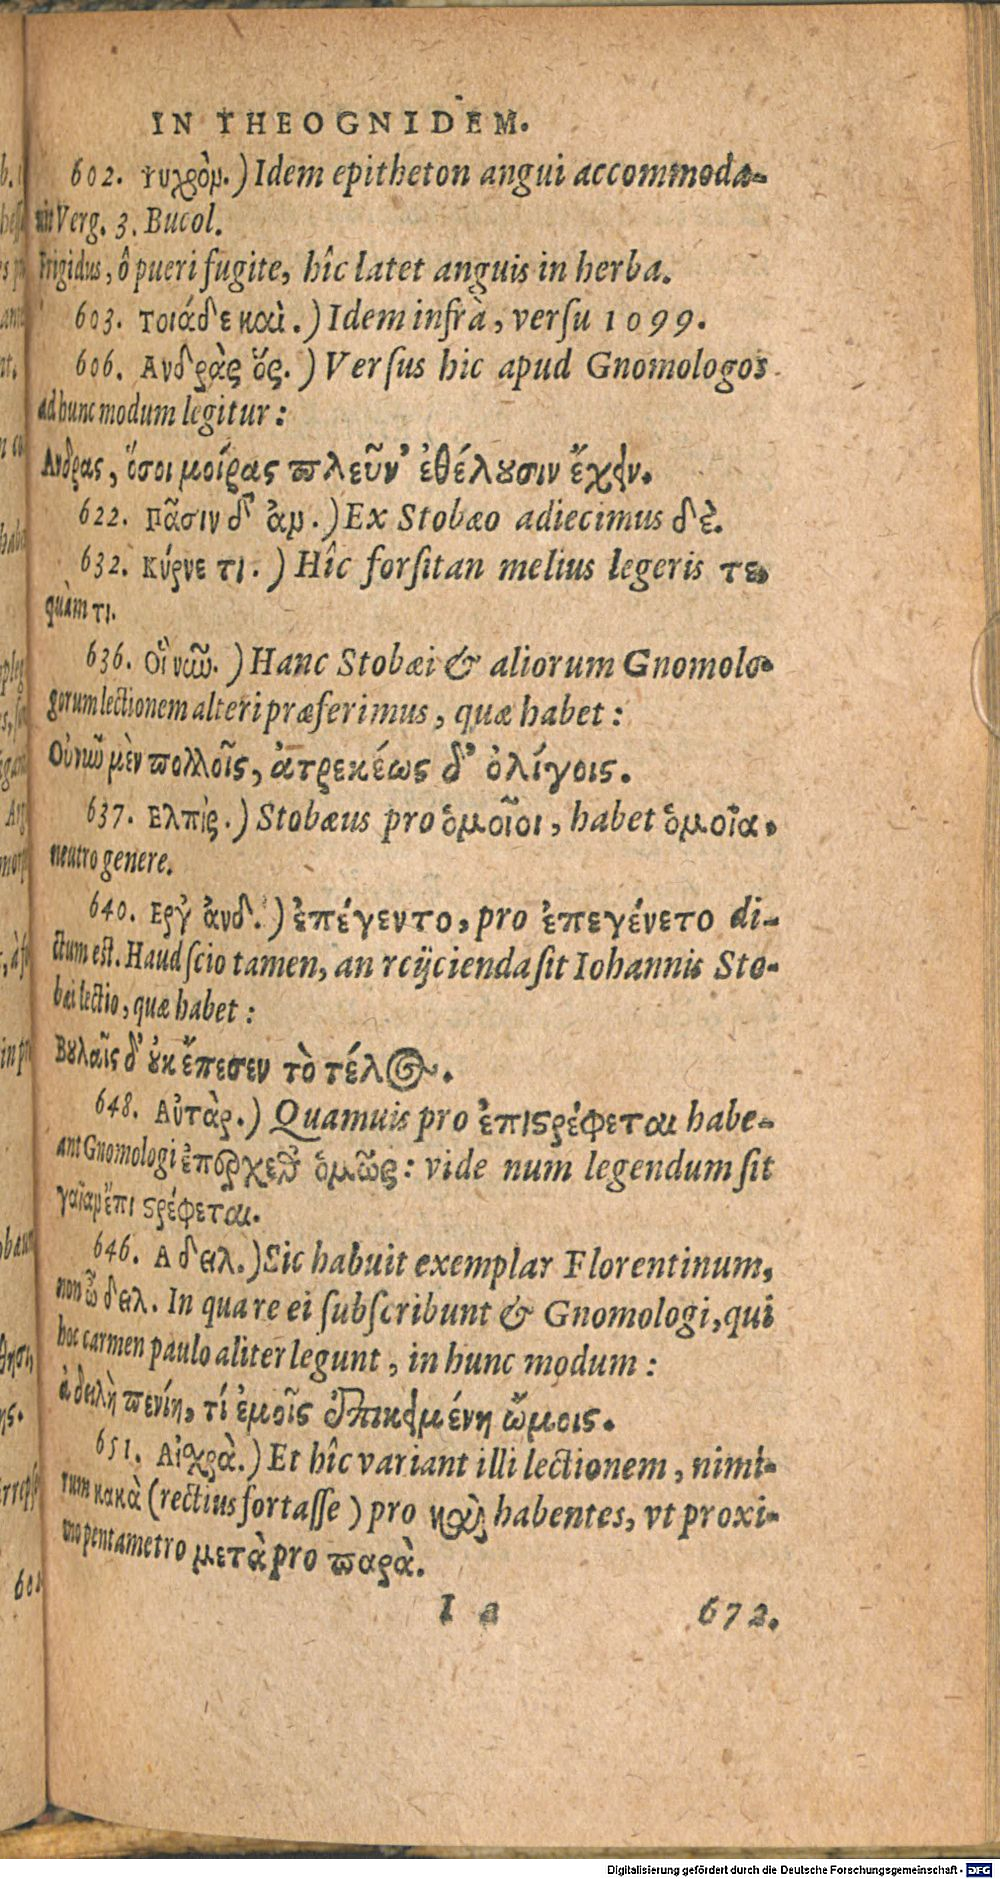 IN THEOGNIDEM.
602. ψυχρὸν.) Idem epitheton angui accommoda-
uit Verg. 3. Bucol.
Frigidus, ô pueri fugite, hîc latet anguis in herba.
603. Τοιάδε καὶ.) Idem infrà, versu 1099.
606. Ανδρὰς ὅς.) Versus hic apud Gnomologos
ad hunc modum legitur:
Ανδρας, ὅσοι μοίρας πλεῦν' ἐθέλουσιν ἔχειν.
622. Πᾶσιν δ' ἀν.) Ex Stobæo adiecimus δὲ.
632. Κύρνε τι.) Hîc forsitan melius legeris τε,
quàm τι.
636. Οἳ νῶ.) Hanc Stobæi & aliorum Gnomolo-
gorum lectionem alteri præferimus, quæ habet:
Οὐ νῶ μὲν πολλοῖς, ἀτρεκέως δ' ὀλίγοις.
637. Ελπὶς.) Stobæus pro ὁμοῖοι, habet ὁμοῖα,
neutro genere.
640. Εργ' ἀνδ.) ἐπέγεντο, pro ἐπεγένετο di-
ctum est. Haud scio tamen, an reijcienda sit Iohannis Sto-
bæi lectio, quæ habet:
Βουλαῖς δ' οὐκ ἔπεσεν τὸ τέλος.
648. Αὐτὰρ.) Quamuis pro ἐπιστρέφεται habe-
ant Gnomologi ἐπέρχεθ' ὁμῶς: vide num legendum sit
γαῖαν ἔπι στρέφεται.
646. Α δειλ.) Sic habuit exemplar Florentinum,
non ὦ δειλ. In qua re ei subscribunt & Gnomologi, qui
hoc carmen paulo aliter legunt, in hunc modum:
ἀ δειλὴ πενίη, τί ἐμοῖς ἐπικειμένη ὤμοις.
651. Αἰσχρὰ.) Et hîc variant illi lectionem, nimi-
rum κακὰ (rectius fortasse) pro καὶ habentes, vt proxi-
mo pentametro μετὰ pro παρὰ.
I 2 672.
Digitalisierung gefördert durch die Deutsche Forschungsgemeinschaft - DFG